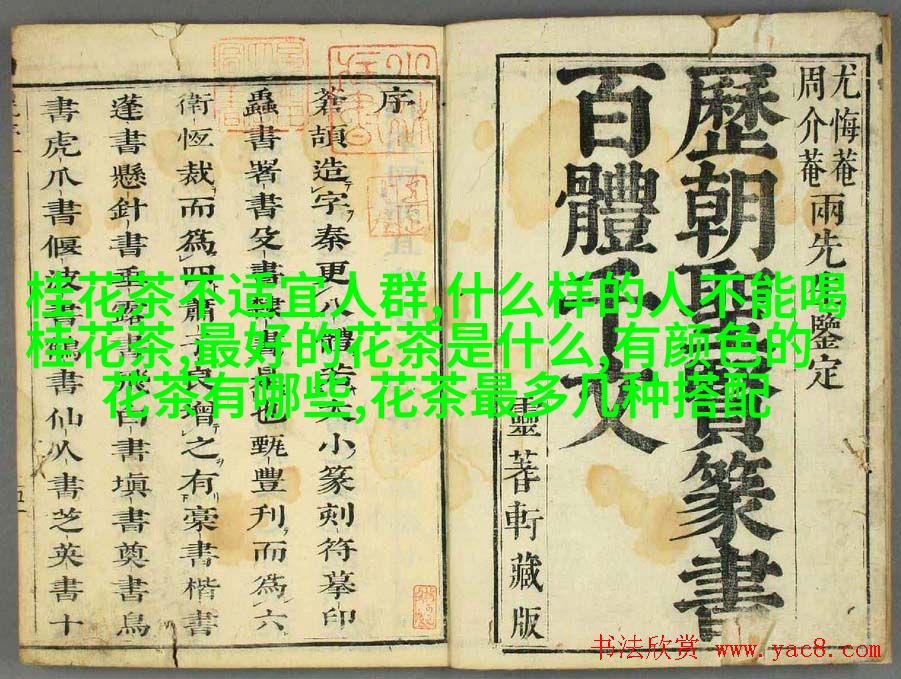 桂花茶不适宜人群,什么样的人不能喝
桂花茶,最好的花茶是什么,有颜色的
花茶有哪些,花茶最多几种搭配
尤悔菴
周介菴
兩先生鑒定
歷朝聖賢篆書
百體千文
靈蓍軒藏版
序
蒼頡造字秦更八體著大小篆刻符摹印
蟲書署書殳書隸書是也甄豐刋而爲六
衛恆裁而爲四蕭子良增之有藁書楷書
蓬書懸針書垂露書飛白書塡書奠書鳥
書虎爪書偃波書鶴書仙人書芝英書十
书法欣赏 www.yac8.com